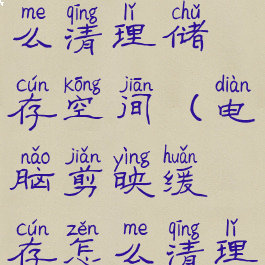 me qīng lǐ chǔ
么清理储
cún kōng jiān diàn
存空间（电
nǎo jiǎn yìng huǎn
脑剪映缓
cún zěn me qīng lǐ
存怎么清理